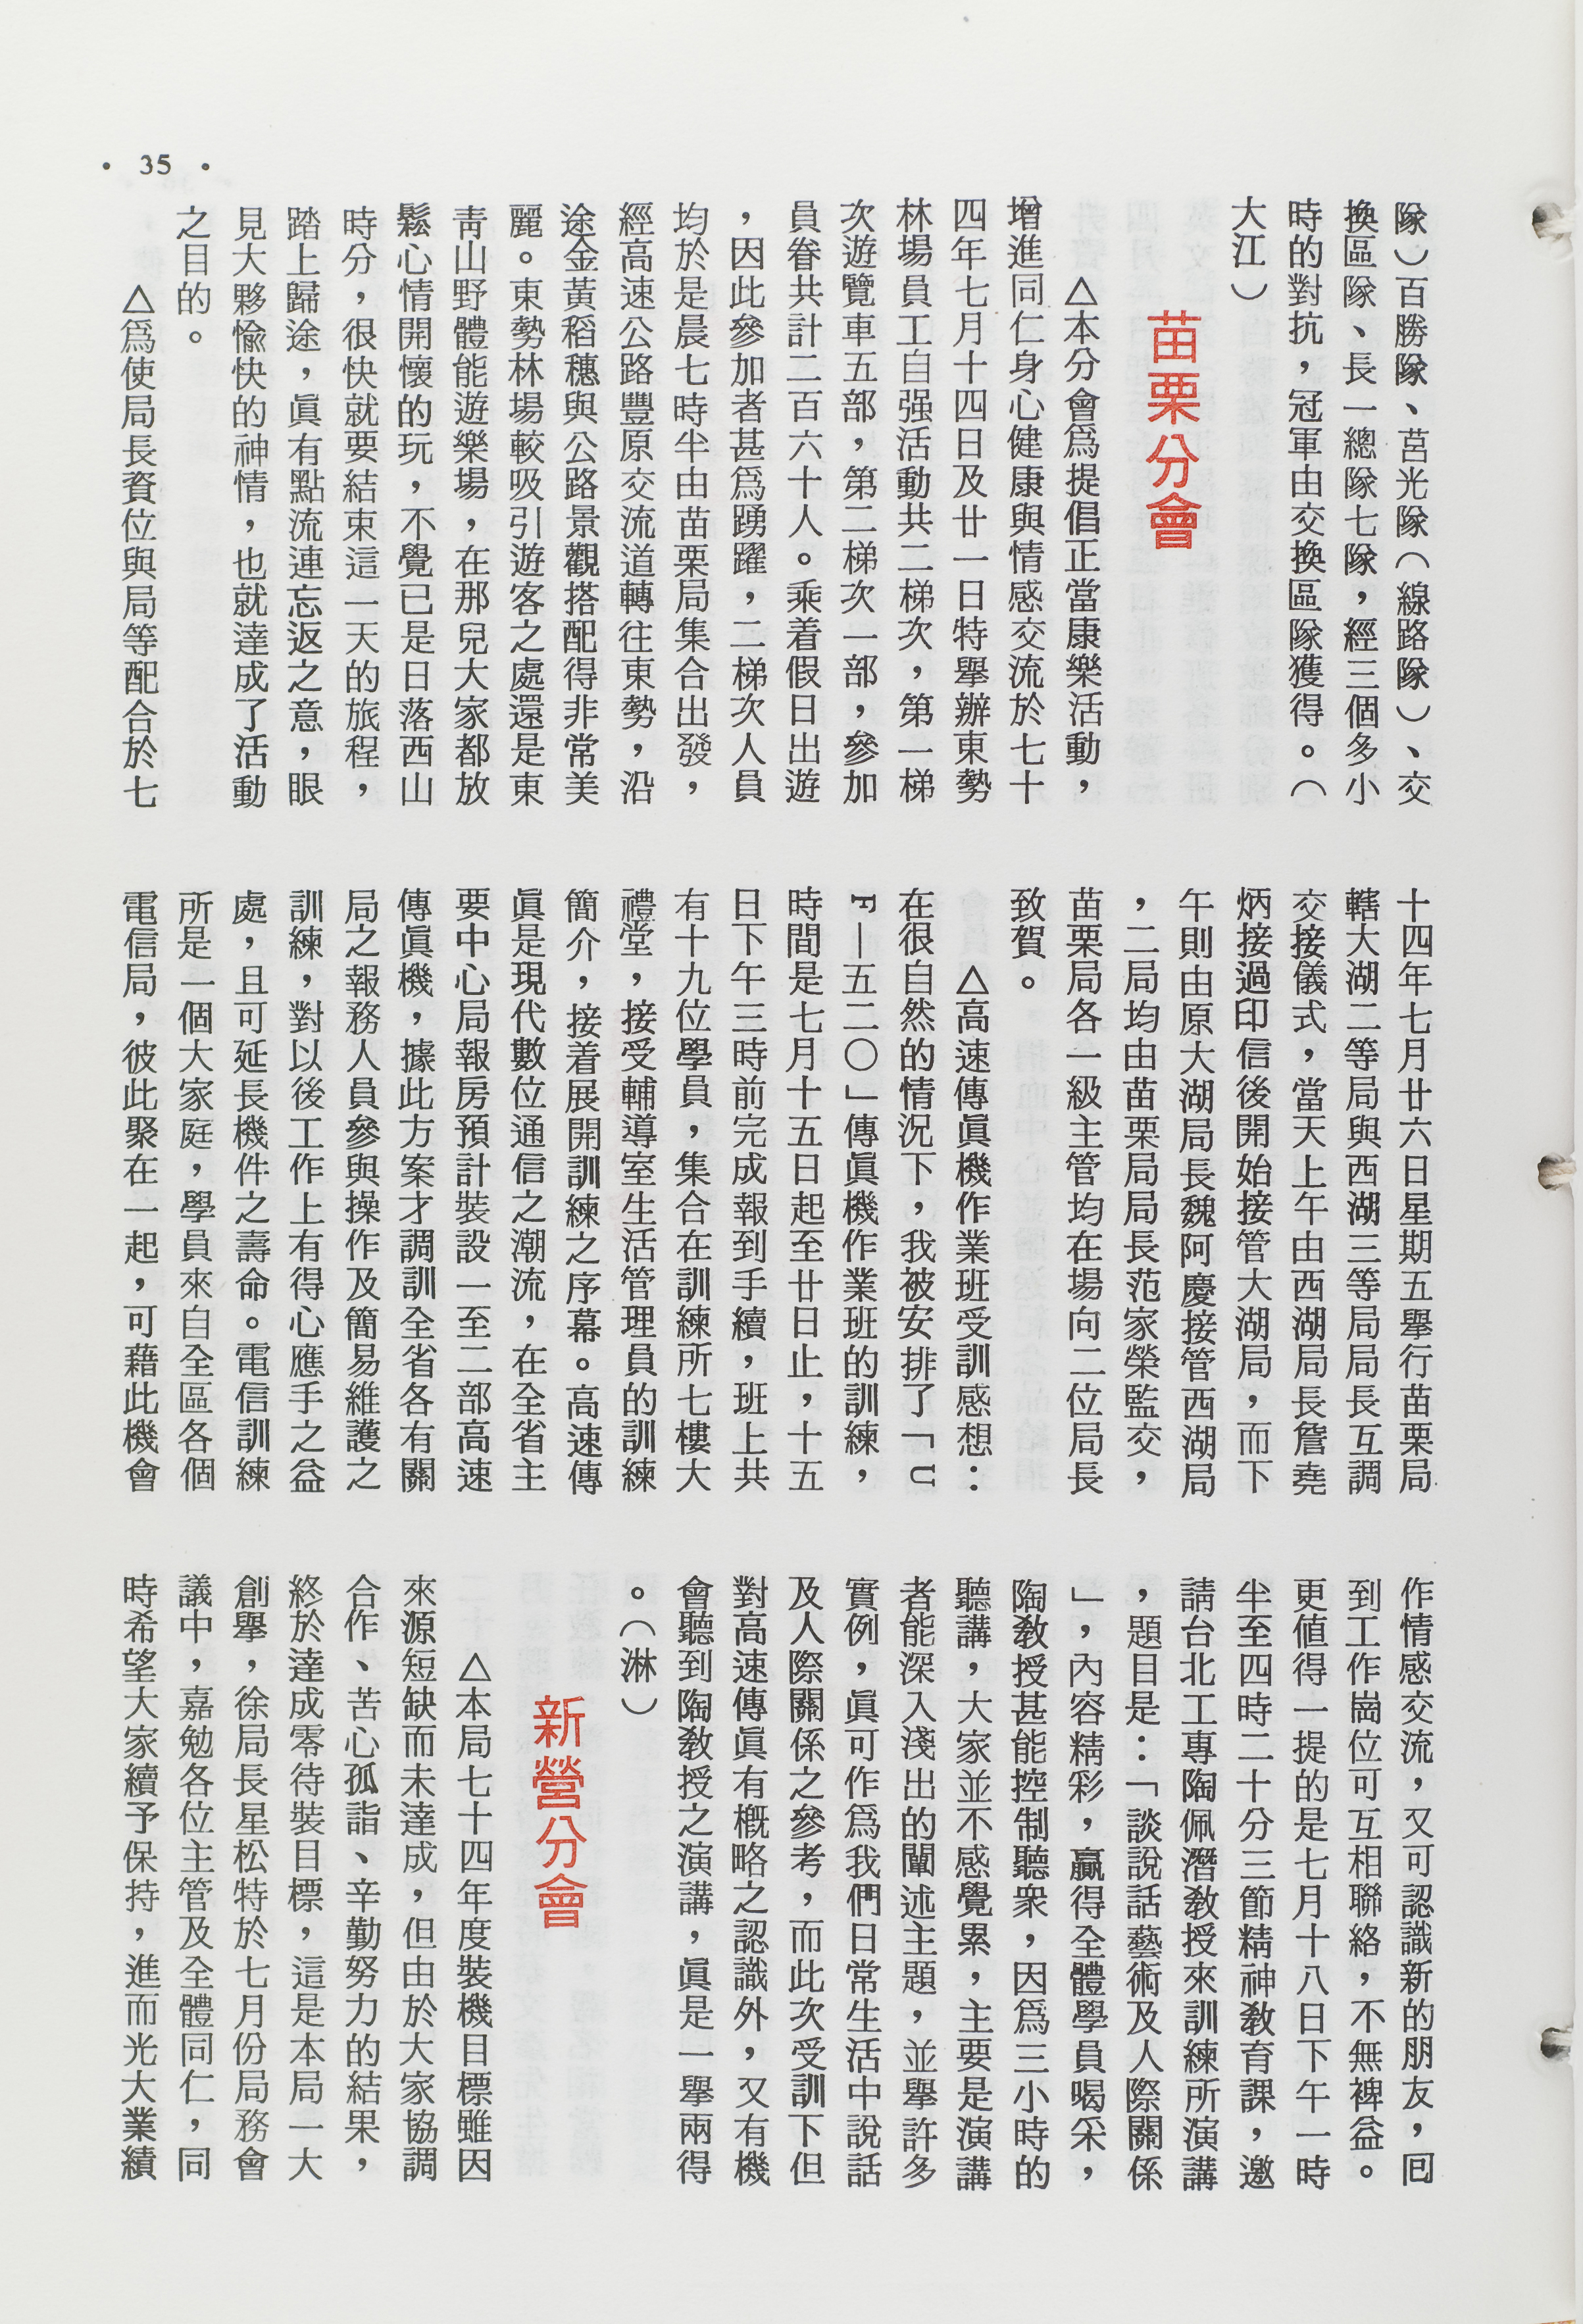 • 35 •
隊）百勝隊、莒光隊（線路隊）、交
換區隊、長一總隊七隊，經三個多小
時的對抗，冠軍由交換區隊獲得。（
大江）
苗栗分會
△本分會爲提倡正當康樂活動，
增進同仁身心健康與情感交流於七十
四年七月十四日及廿一日特舉辦東勢
林場員工自强活動共二梯次，第一梯
次遊覽車五部，第二梯次一部，參加
員眷共計二百六十人。乘着假日出遊
，因此參加者甚爲踴躍，二梯次人員
均於是晨七時半由苗栗局集合出發，
經高速公路豐原交流道轉往東勢，沿
途金黃稻穗與公路景觀搭配得非常美
麗。東勢林場較吸引遊客之處還是東
靑山野體能遊樂場，在那兒大家都放
鬆心情開懷的玩，不覺已是日落西山
時分，很快就要結束這一天的旅程，
踏上歸途，眞有點流連忘返之意，眼
見大夥愉快的神情，也就達成了活動
之目的。
△爲使局長資位與局等配合於七
十四年七月廿六日星期五舉行苗栗局
轄大湖二等局與西湖三等局局長互調
交接儀式，當天上午由西湖局長詹堯
炳接過印信後開始接管大湖局，而下
午則由原大湖局長魏阿慶接管西湖局
，二局均由苗栗局局長范家榮監交，
苗栗局各一級主管均在場向二位局長
致賀。
△高速傳眞機作業班受訓感想：
在很自然的情況下，我被安排了「U
F—五二〇」傳眞機作業班的訓練，
時間是七月十五日起至廿日止，十五
日下午三時前完成報到手續，班上共
有十九位學員，集合在訓練所七樓大
禮堂，接受輔導室生活管理員的訓練
簡介，接着展開訓練之序幕。高速傳
眞是現代數位通信之潮流，在全省主
要中心局報房預計裝設一至二部高速
傳眞機，據此方案才調訓全省各有關
局之報務人員參與操作及簡易維護之
訓練，對以後工作上有得心應手之益
處，且可延長機件之壽命。電信訓練
所是一個大家庭，學員來自全區各個
電信局，彼此聚在一起，可藉此機會
作情感交流，又可認識新的朋友，囘
到工作崗位可互相聯絡，不無裨益。
更値得一提的是七月十八日下午一時
半至四時二十分三節精神敎育課，邀
請台北工專陶佩潛敎授來訓練所演講
，題目是：「談說話藝術及人際關係
」，內容精彩，贏得全體學員喝采，
陶敎授甚能控制聽衆，因爲三小時的
聽講，大家並不感覺累，主要是演講
者能深入淺出的闡述主題，並舉許多
實例，眞可作爲我們日常生活中說話
及人際關係之參考，而此次受訓下但
對高速傳眞有概略之認識外，又有機
會聽到陶敎授之演講，眞是一舉兩得
。（淋）
新營分會
△本局七十四年度裝機目標雖因
來源短缺而未達成，但由於大家協調
合作、苦心孤詣、辛勤努力的結果，
終於達成零待裝目標，這是本局一大
創擧，徐局長星松特於七月份局務會
議中，嘉勉各位主管及全體同仁，同
時希望大家續予保持，進而光大業績